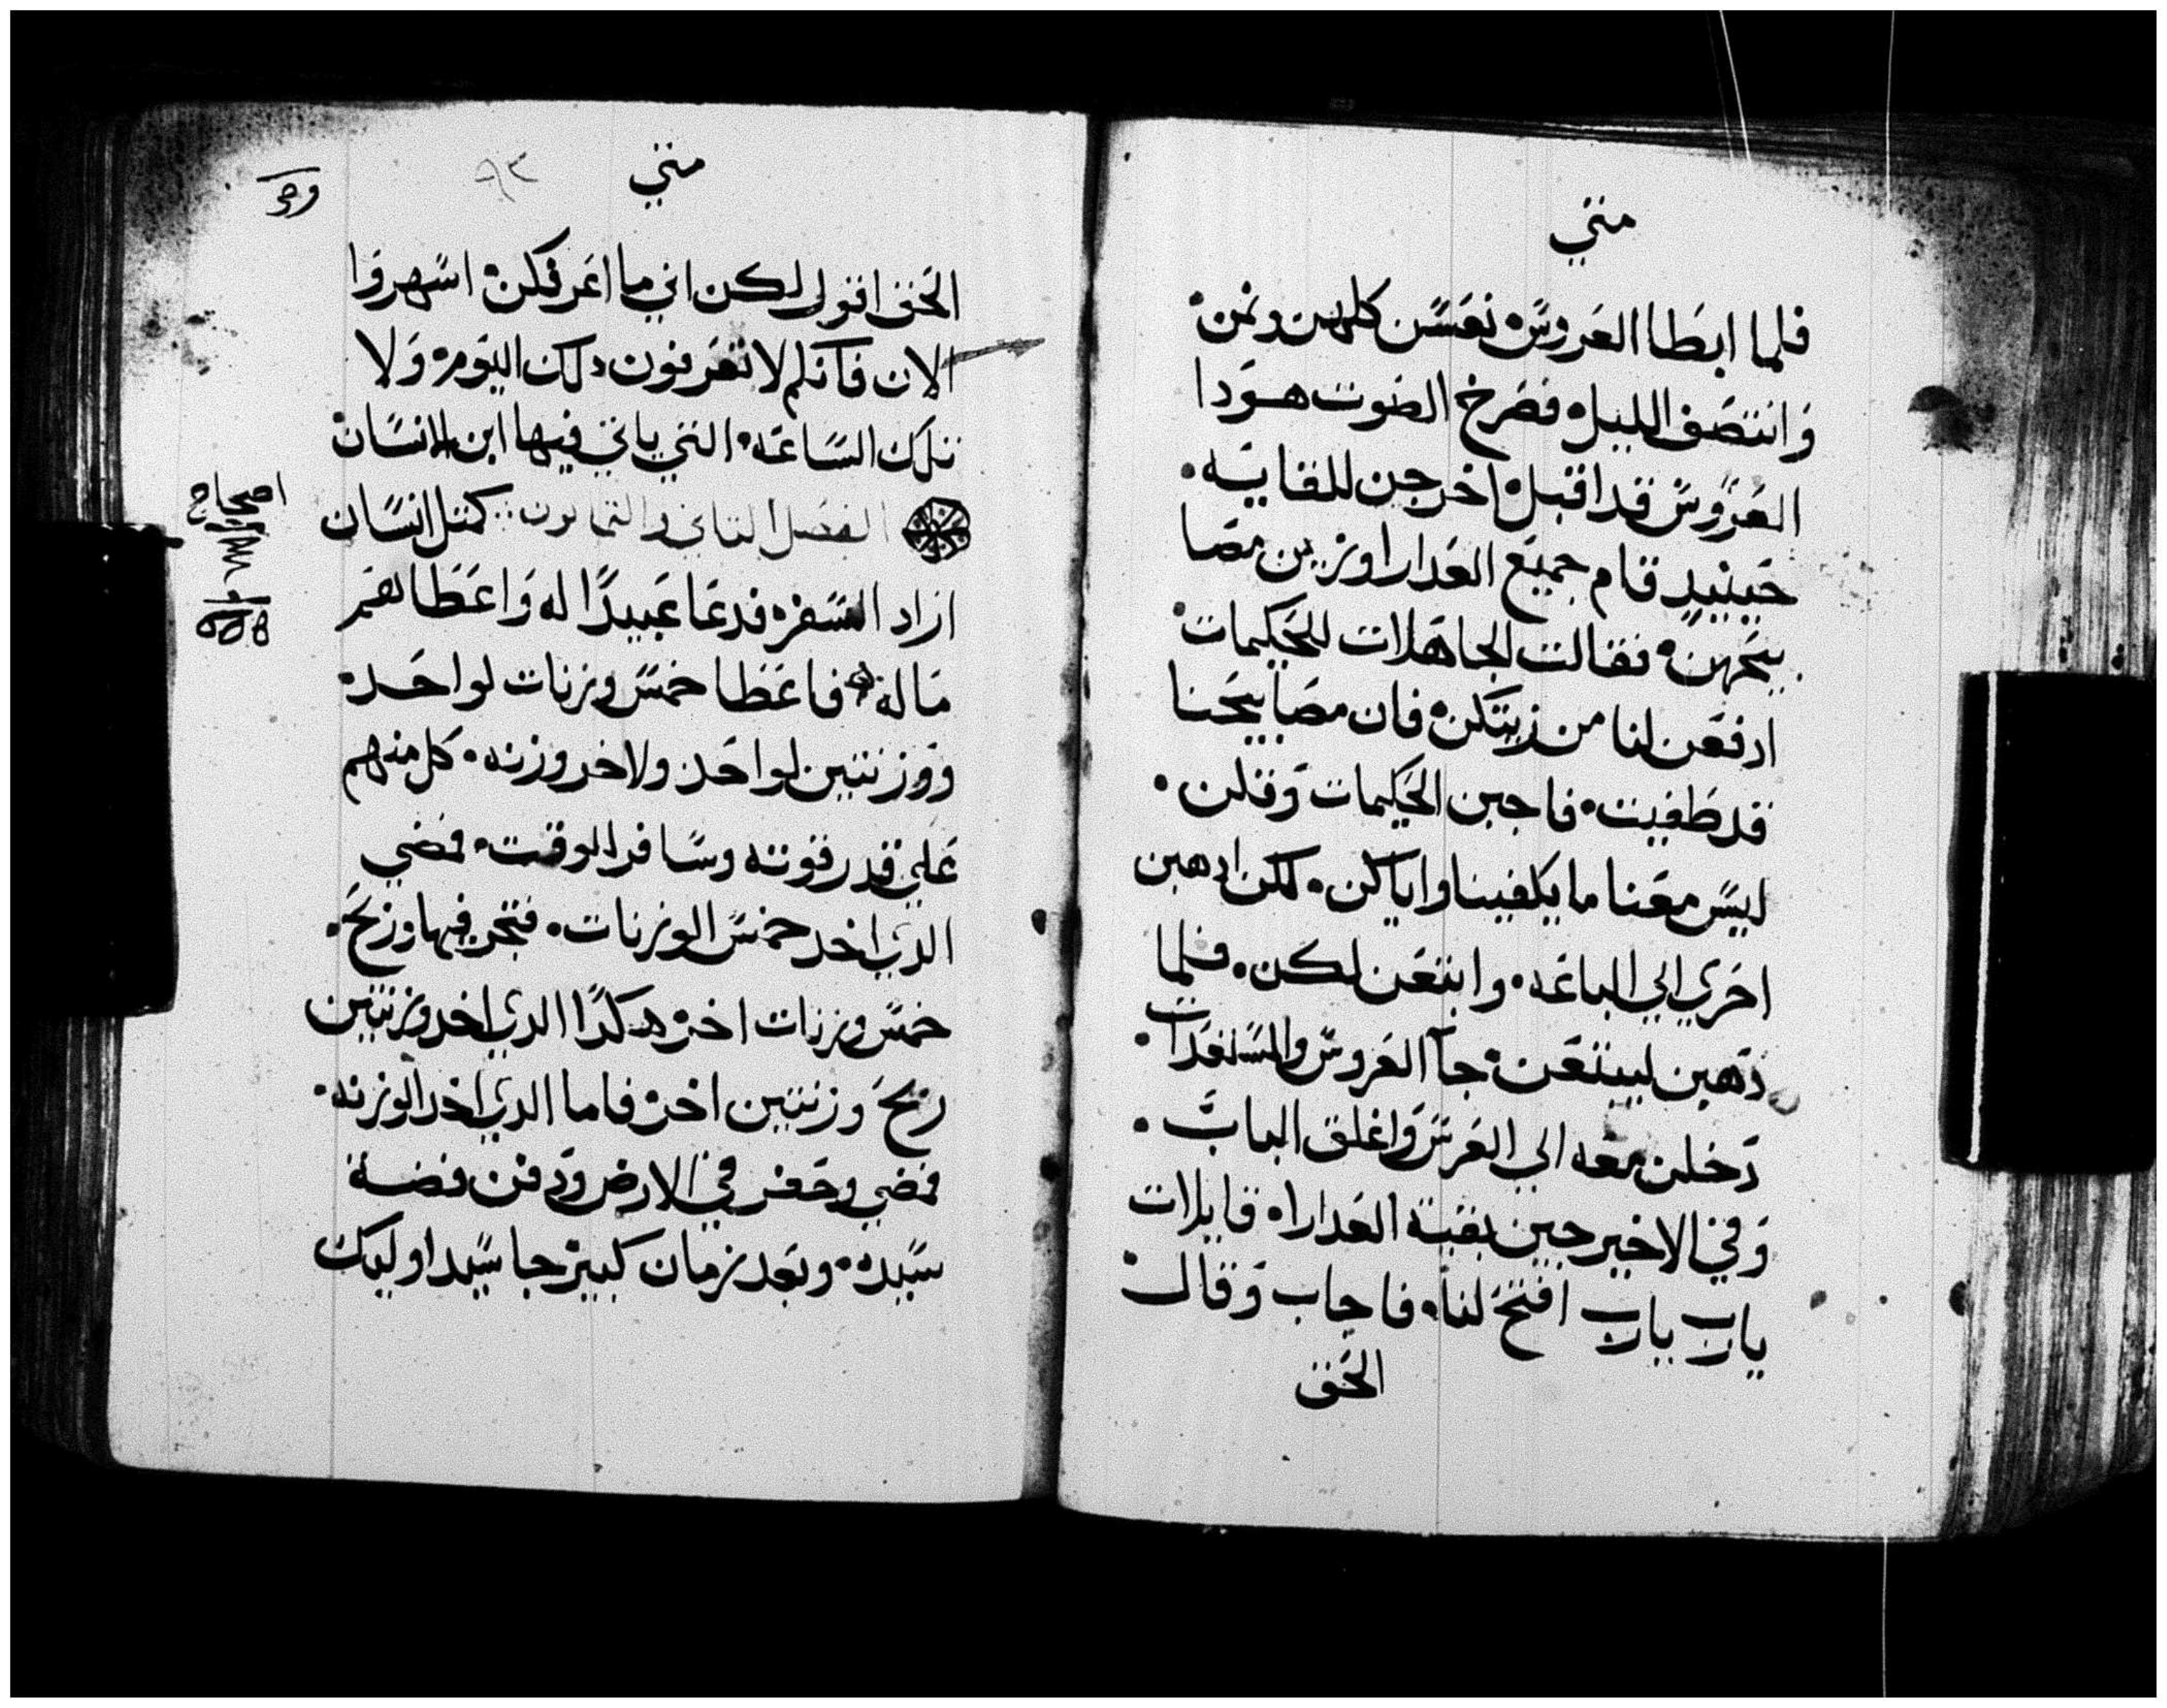 متي
فلما ابطا العروس نعسن كلهن ونمن
وانتصف الليل فصرخ الصوت هودا
العروس قد اقبل اخرجن للقايه
حينيد قام جميع العدارا وزين مصا
بيحهن فقالت الجاهلات للحكيمات
ادفعن لنا من زيتكن فان مصابيحنا
قد طفيت فاجبن الحكيمات وقلن
ليس معنا ما يكفينا واياكن لكن ادهبن
احري الي الباعه وابتعن لكن فلما
دهبن ليبتعن جآ العروس والمستعدات
دخلن معه الي العرس واغلق الباب
وفي الاخير جين بقية العداراه قايلات
يارب يارب افتح لنا فاجاب وقال
الحق
متي
٩٢
الحق اقول لكن اني ما اعرفكن اسهروا
الان فانكم لا تعرفون دلك اليوم ولا
تلك الساعه التي ياتي فيها ابن الانسان
الفصل التاني والتمانون كمتل انسان
اراد السفر فدعا عبيدًا له واعطاهم
ماله فاعطا خمس وزنات لواحد
ووزنتين لواحد ولاخر وزنه كل منهم
علي قدر قوته وسافر للوقت فمضي
الدي اخد خمس الوزنات فتجر فيها وربح
خمس وزنات اخر هكدًا الدي اخد وزنتين
ربح وزنتين اخر فاما الدي اخد الوزنه
فمضي وحفر في الارض ودفن فضة
سيده وبعد زمان كبير جا سيد اوليك
اصحاح